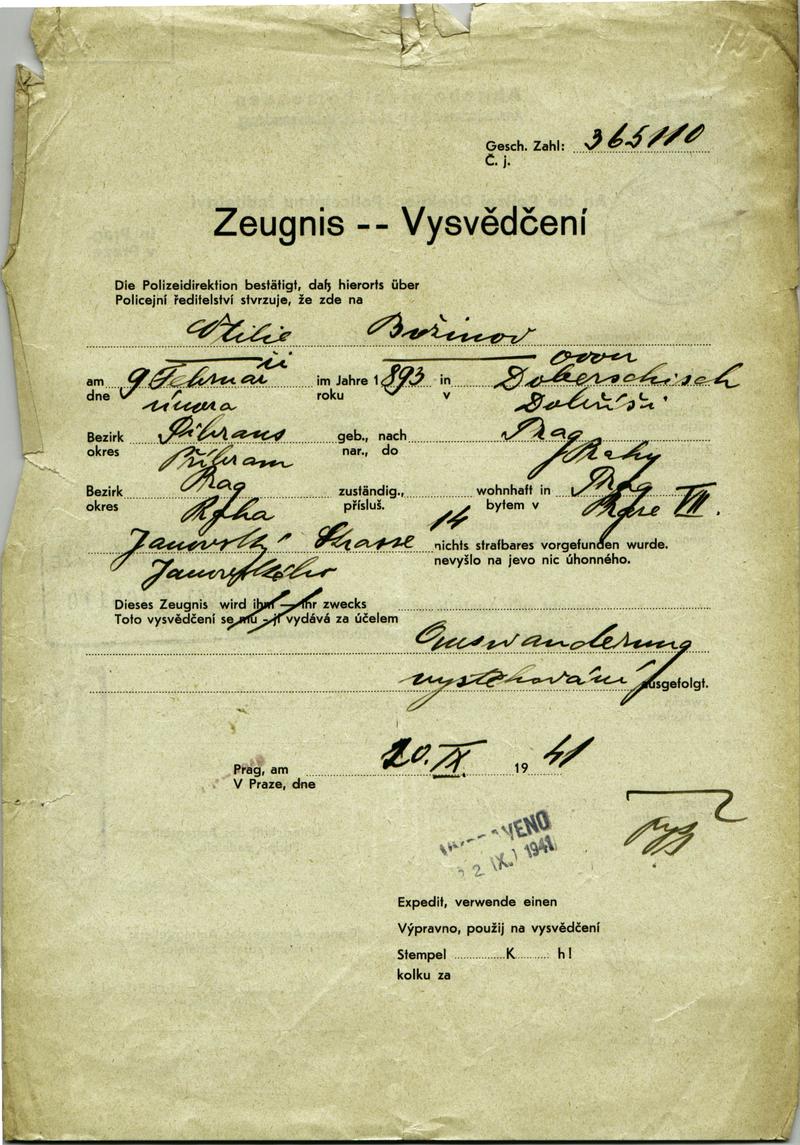 Gesch. Zahl: 365110
Č. j.
Zeugnis -- Vysvědčení
Die Polizeidirektion bestätigt, daß hierorts über
Policejní ředitelství stvrzuje, že zde na
Otilie Božinov
ová
am 9 Februar im Jahre 1893 in Doberschisch
dne února roku v Dobříši
Bezirk Přibrans geb., nach Prag
okres Příbram nar., do Prahy
Bezirk Prag zuständig., wohnhaft in Prag
okres Praha přísluš. bytem v VII.
Janovský Strasse 14 nichts strafbares vorgefunden wurde.
Janovského nevyšlo na jevo nic úhonného.
Dieses Zeugnis wird ihm — ihr zwecks
Toto vysvědčení se mu - jí vydává za účelem
Auswanderung
vystěhování ausgefolgt.
Prag, am 20. IX. 1941
V Praze, dne
VENO
2 IX. 1941
Expedit, verwende einen
Výpravno, použij na vysvědčení
Stempel K h!
kolku za